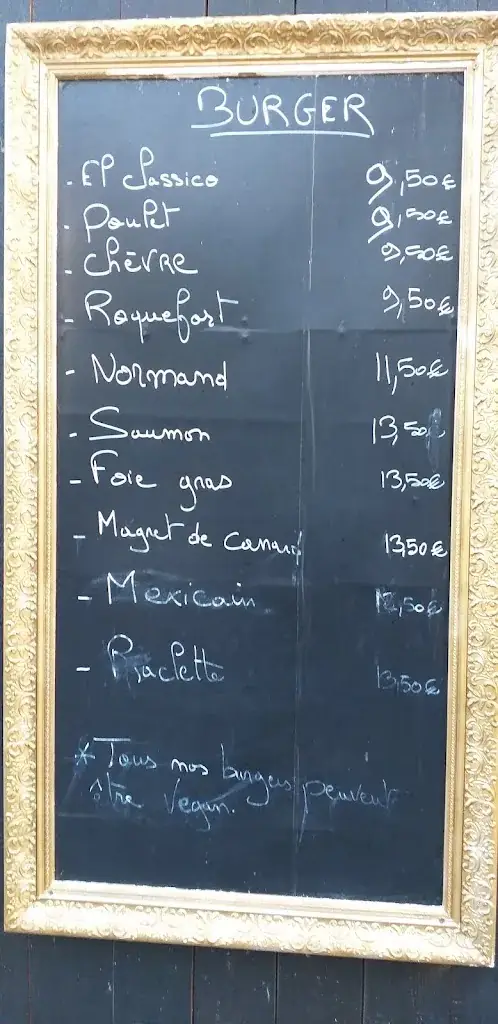 BURGER
- El Classico 9,50€
- Poulet 9,50€
- Chèvre 9,50€
- Roquefort 9,50€
- Normand 11,50€
- Saumon 13,50€
- Foie gras 13,50€
- Magret de canard 13,50€
- Mexicain
- Raclette 13,50€
* Tous nos burgers peuvent
être Vegan.